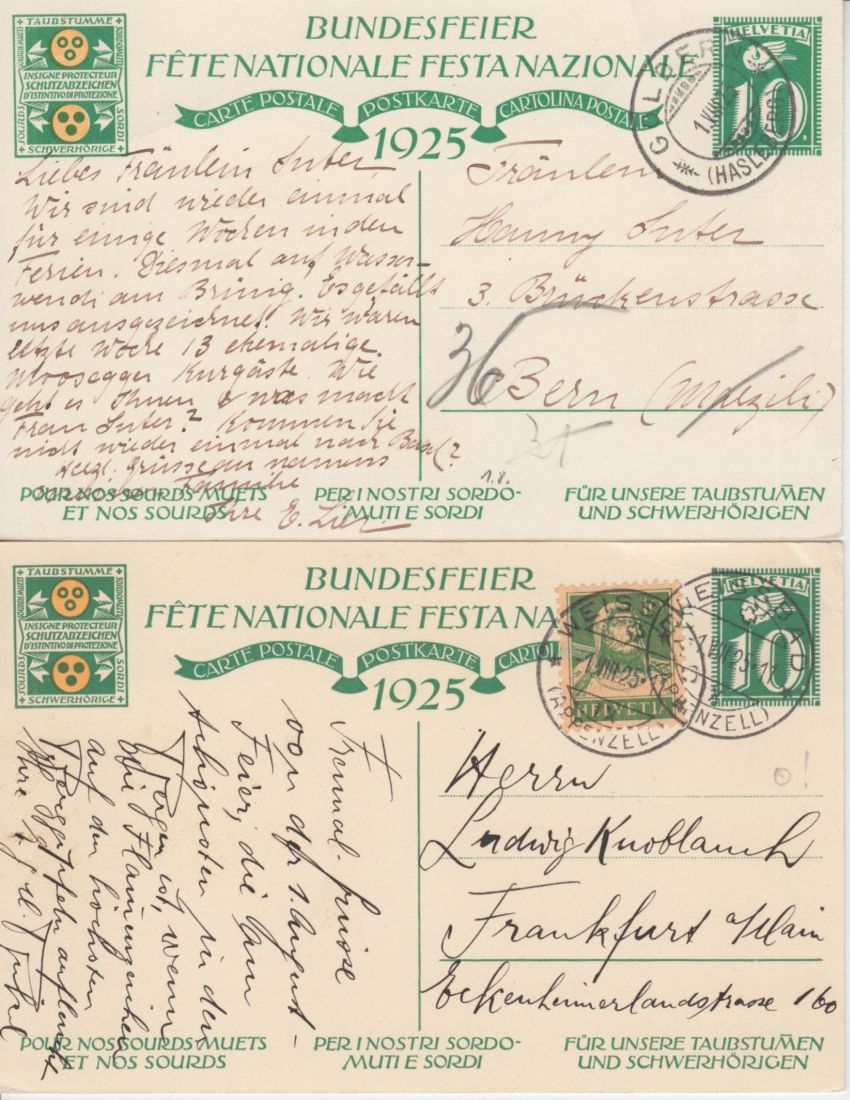 TAUBSTUMME
SORDOMUTI
INSIGNE PROTECTEUR
SCHUTZABZEICHEN
D'ISTINTIVO DI PROTEZIONE
SOURDS
SORDI
SCHWERHÖRIGE
BUNDESFEIER
FÊTE NATIONALE FESTA NAZIONALE
CARTE POSTALE POSTKARTE CARTOLINA POSTALE
1925
HELVETIA
10
(HASLEBERG)
Liebes Fräulein Suter,
Wir sind wieder einmal
für einige Wochen in den
Ferien. Diesmal auf Wasser-
wendi am Brünig. Es gefällt
uns ausgezeichnet. Wir waren
letzte Woche 13 ehemalige
Moosegger Kurgäste. Wie
geht es Ihnen & was macht
Frau Suter? Kommen Sie
nicht wieder einmal nach Basel?
Herzl. Grüsse an namens
Familie
Ihre E. Lier.
Fräulein
Hanny Suter
3. Brückenstrasse
Bern (Marzili)
36
1.8.
POUR NOS SOURDS-MUETS
ET NOS SOURDS
PER I NOSTRI SORDO-
MUTI E SORDI
FÜR UNSERE TAUBSTUM̅EN
UND SCHWERHÖRIGEN
TAUBSTUMME
SORDOMUTI
INSIGNE PROTECTEUR
SCHUTZABZEICHEN
D'ISTINTIVO DI PROTEZIONE
SOURDS
SORDI
SCHWERHÖRIGE
BUNDESFEIER
FÊTE NATIONALE FESTA NA
CARTE POSTALE POSTKARTE CARTOLIN
1925
HELVETIA
HELVETIA
10
WEISSBAD
1.VIII.25-11
(APPENZELL)
Grüsse
von der 1. August-
Feier, die am
schönsten in den
Bergen ist, wenn
die Flammenzeichen
auf den höchsten
Berggipfeln aufleuchten
Ihre
Herrn
Ludwig Knoblauch
Frankfurt a/Main
Eckenheimerlandstrasse 160
POUR NOS SOURDS-MUETS
ET NOS SOURDS
PER I NOSTRI SORDO-
MUTI E SORDI
FÜR UNSERE TAUBSTUM̅EN
UND SCHWERHÖRIGEN